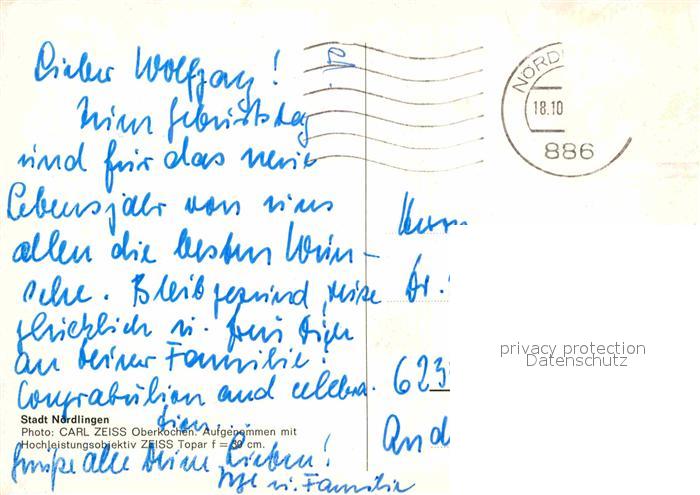 Lieber Wolfgang!
Zum Geburtstag
und für das neue
Lebensjahr von uns
allen die besten Wün-
sche. Bleib gesund, reise
glücklich u. freu Dich
an Deiner Familie!
Congratulion and celebra-
tion...
Grüße alle Deine Lieben!
u. Familie
NÖRD
18.10
886
Herrn
Dr.
623
privacy protection
Datenschutz
Stadt Nördlingen
Photo: CARL ZEISS Oberkochen. Aufgenommen mit
Hochleistungsobjektiv ZEISS Topar f = 30 cm.